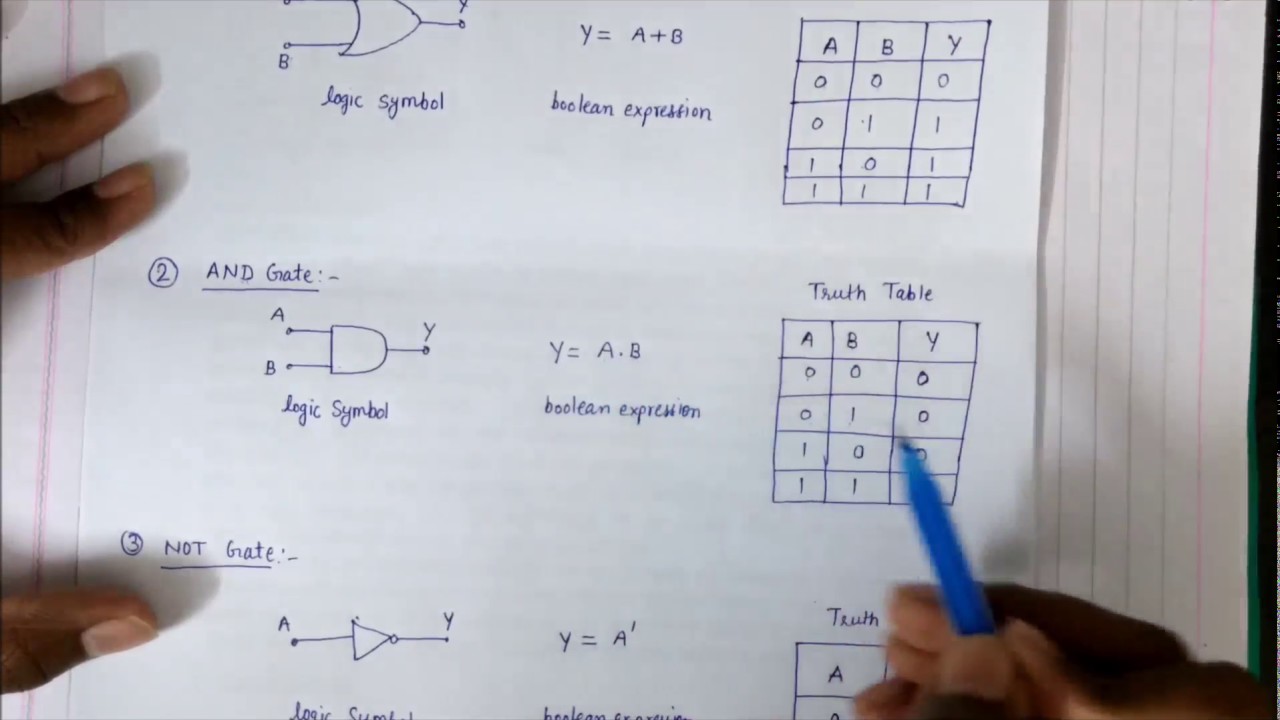 Y
B
logic symbol
Y = A+B
boolean expression
A B Y
0 0 0
0 1 1
1 0 1
1 1 1
② AND Gate:-
A
B
Y
logic Symbol
Y = A.B
boolean expression
Truth Table
A B Y
0 0 0
0 1 0
1 0 0
1 1
③ NOT Gate:-
A
Y
logic Symbol
Y = A'
boolean expression
Truth
A
0